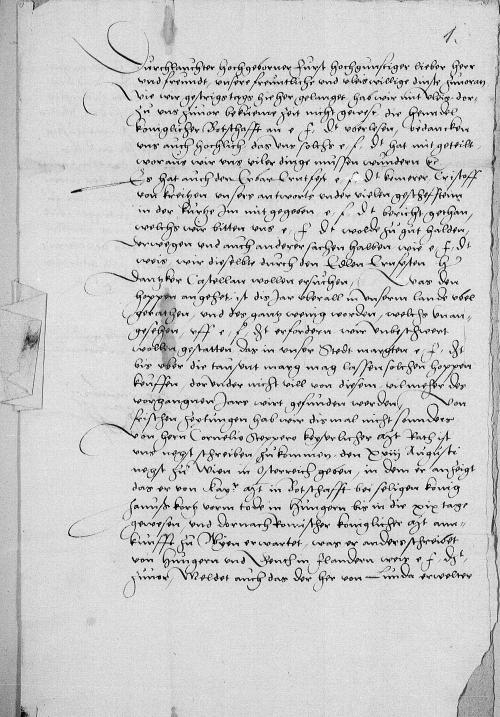 1.
Durchlauchter Hochgeborner Furst hochgunstiger lieber herr
und freundt, unsere freuntliche und vleiswillige dinste zuvoran
Wie wir gestrigstags hieher gelanget hab wir mit vleis dor-
zu uns zuvor bekueme zeit nicht gewese, die hendel
koniglicher Botschafft an e f dt uberlesen, bedancken
uns auch hochlich das uns solchs e f dt hat mit geteilt
woraus wir uns viler dinge mussen wundern
Es hat auch den Erbar Ernfest e f dt kemerer Cristoff
von kreitzen unsere antworte under vielen gescheffteun
in der kurtze im mit gegeben e f dt bericht gethan,
welchs wir bitten uns e f dt wolde zu gut halden,
derwegen und auch anderer sachen halben wie e f dt
weis, wir dieselbe durch den Edlen Ernfesten h
Dantzker Castellan wollen ersuchen, Was den
hoppen angehet ist dis Jar uberall in unserm lande ubel
gerathen, und des gantz wenig worden, welchs unan-
gesehen, uff e f dt erfordern wir unbeschwert
wollen gestatten das in unser Stedt margten e f dt
bis uber die tausunt marg mag lassen solchen hoppen
keuffen, der under nicht vill von diesem, vil mehr des
vorgangnen Jares wirt gefunden werden, Von
frischen zeytungen hab wir dis mal nicht sonders
Von hern Cornelio Sceppero keyserlicher mat Rath ist
uns negst schreiben zukummen, den xviij Augusti
negst zu Wien in Osterreich geben, in dem er anzeigt
das er von kayr mat in Botschafft bei seligen konig
hanus korz vorm tode in Hungern bis in die xix tage
gewesen, und dornach Romischer koniglicher mat an-
kunfft zu Wyen erwartet, was er anders schreibet
von Hungern und Gench in flandern weis e f dt
zuvor, Meldet auch das der her von Lunda erwelter